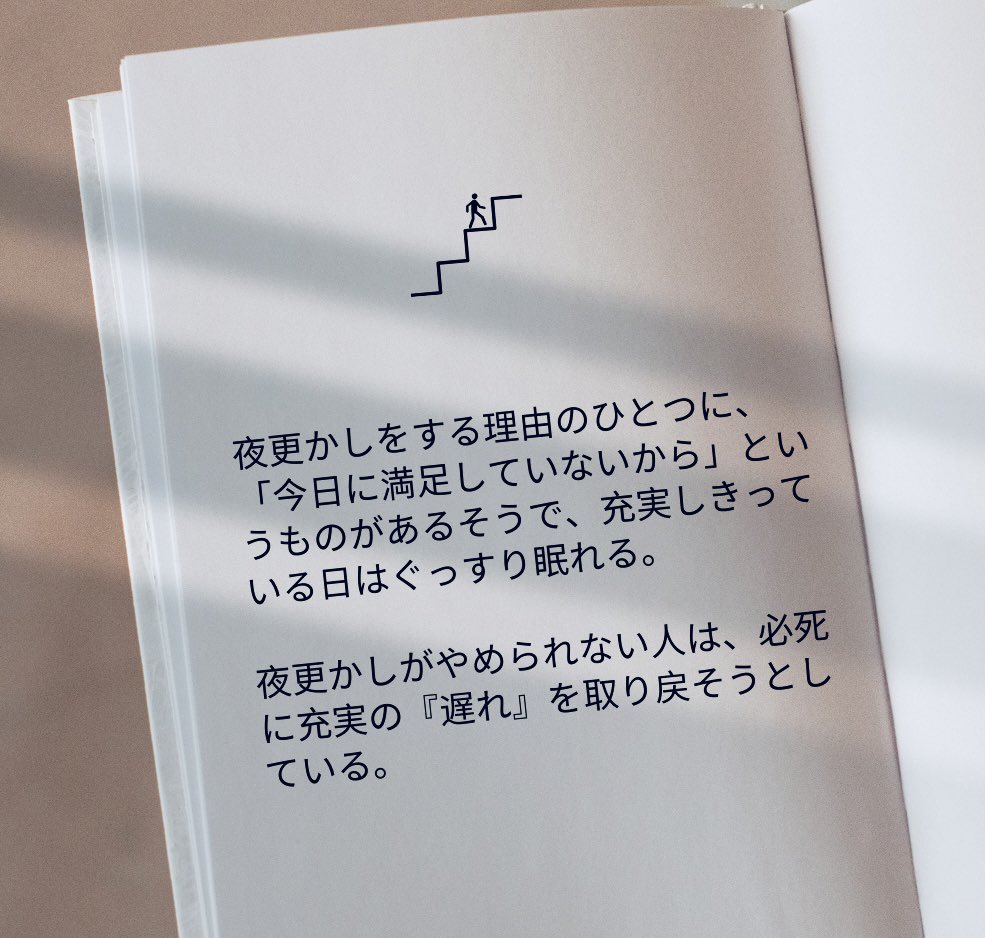 夜更かしをする理由のひとつに、
「今日に満足していないから」とい
うものがあるそうで、充実しきって
いる日はぐっすり眠れる。
夜更かしがやめられない人は、必死
に充実の『遅れ』を取り戻そうとし
ている。